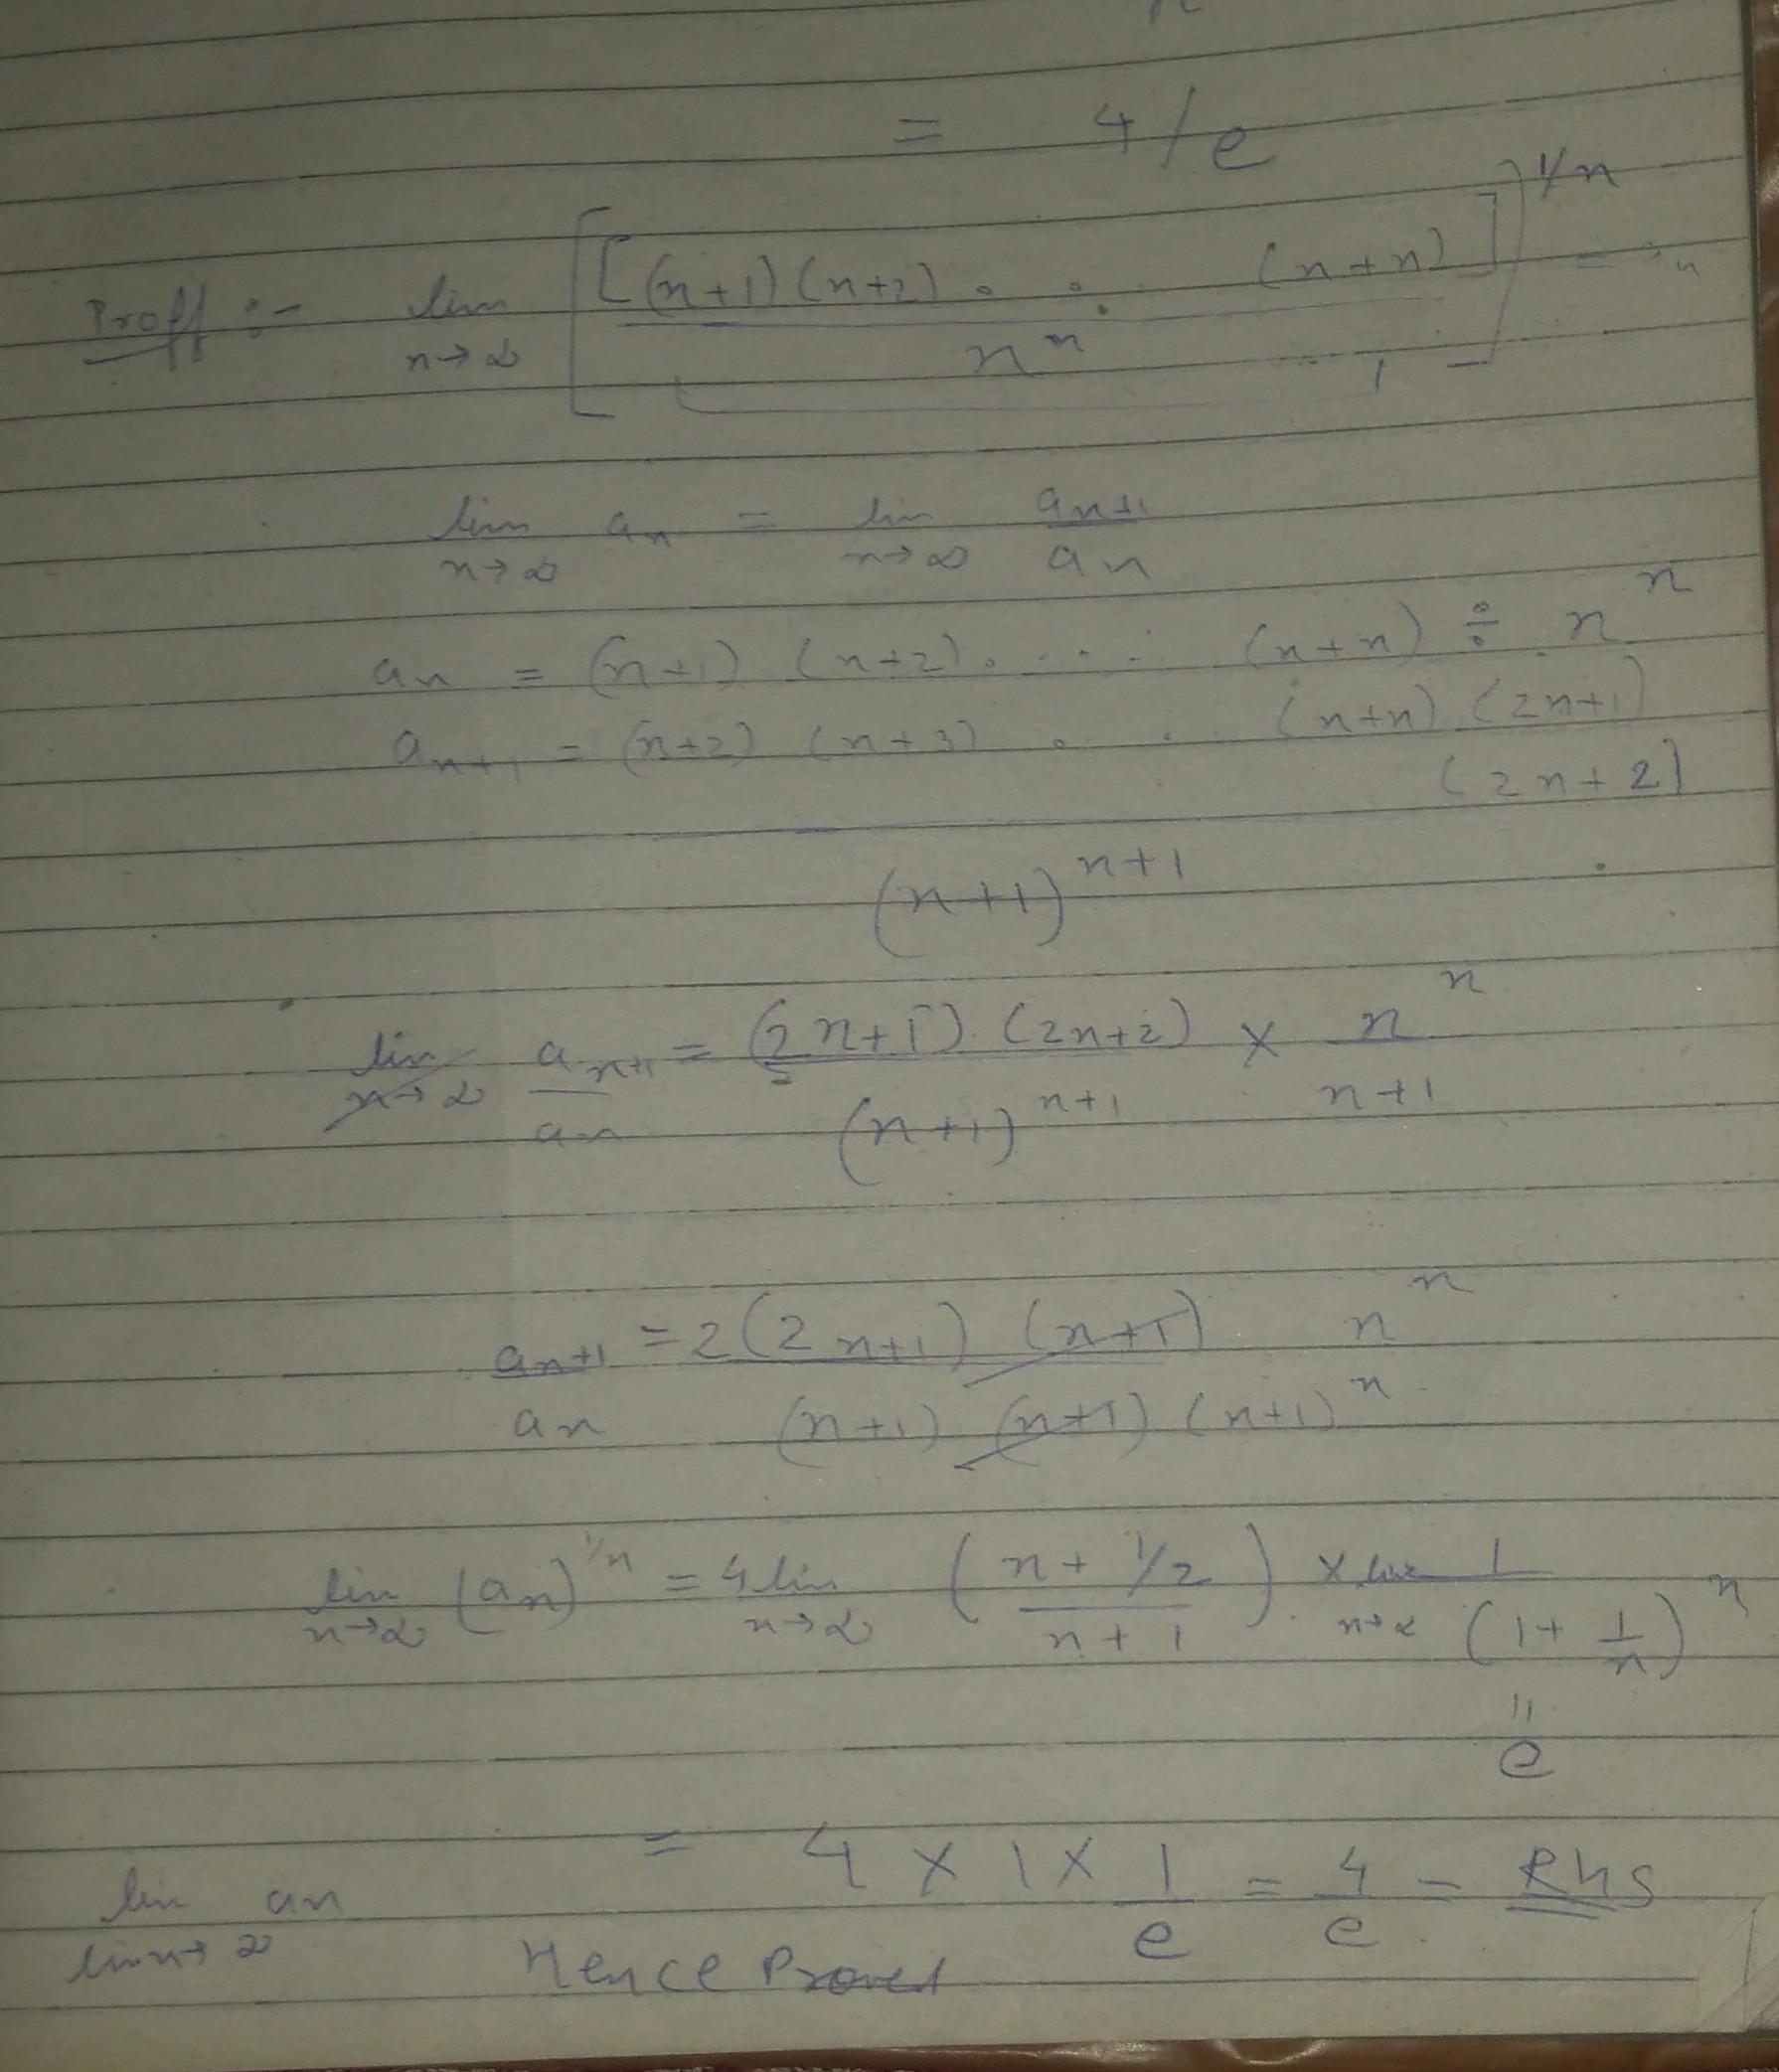 = 4/e
Proff :- lim n→∞ [[(n+1)(n+2) . . . (n+n)] / n^n]^1/n =
lim n→∞ an = lim n→∞ an+1 / an
an = (n+1) (n+2) . . . . (n+n) ÷ n^n
an+1 = (n+2) (n+3) . . (n+n) (2n+1)
(2n+2)
(n+1)^n+1
lim n→∞ an+1 / an = (2n+1) (2n+2) / (n+1)^n+1 × n^n / n+1
an+1 / an = 2(2n+1) (n+1) n^n / (n+1) (n+1) (n+1)^n
lim n→∞ (an)^1/n = 4 lim n→∞ (n + 1/2 / n+1) × lim n→∞ 1 / (1 + 1/n)^n
"
e
= 4 × 1 × 1/e = 4/e = RHS
lim an
lim n→∞
Hence Proved